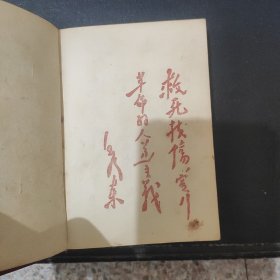 救死扶傷实行
革命的人道主義
毛泽东